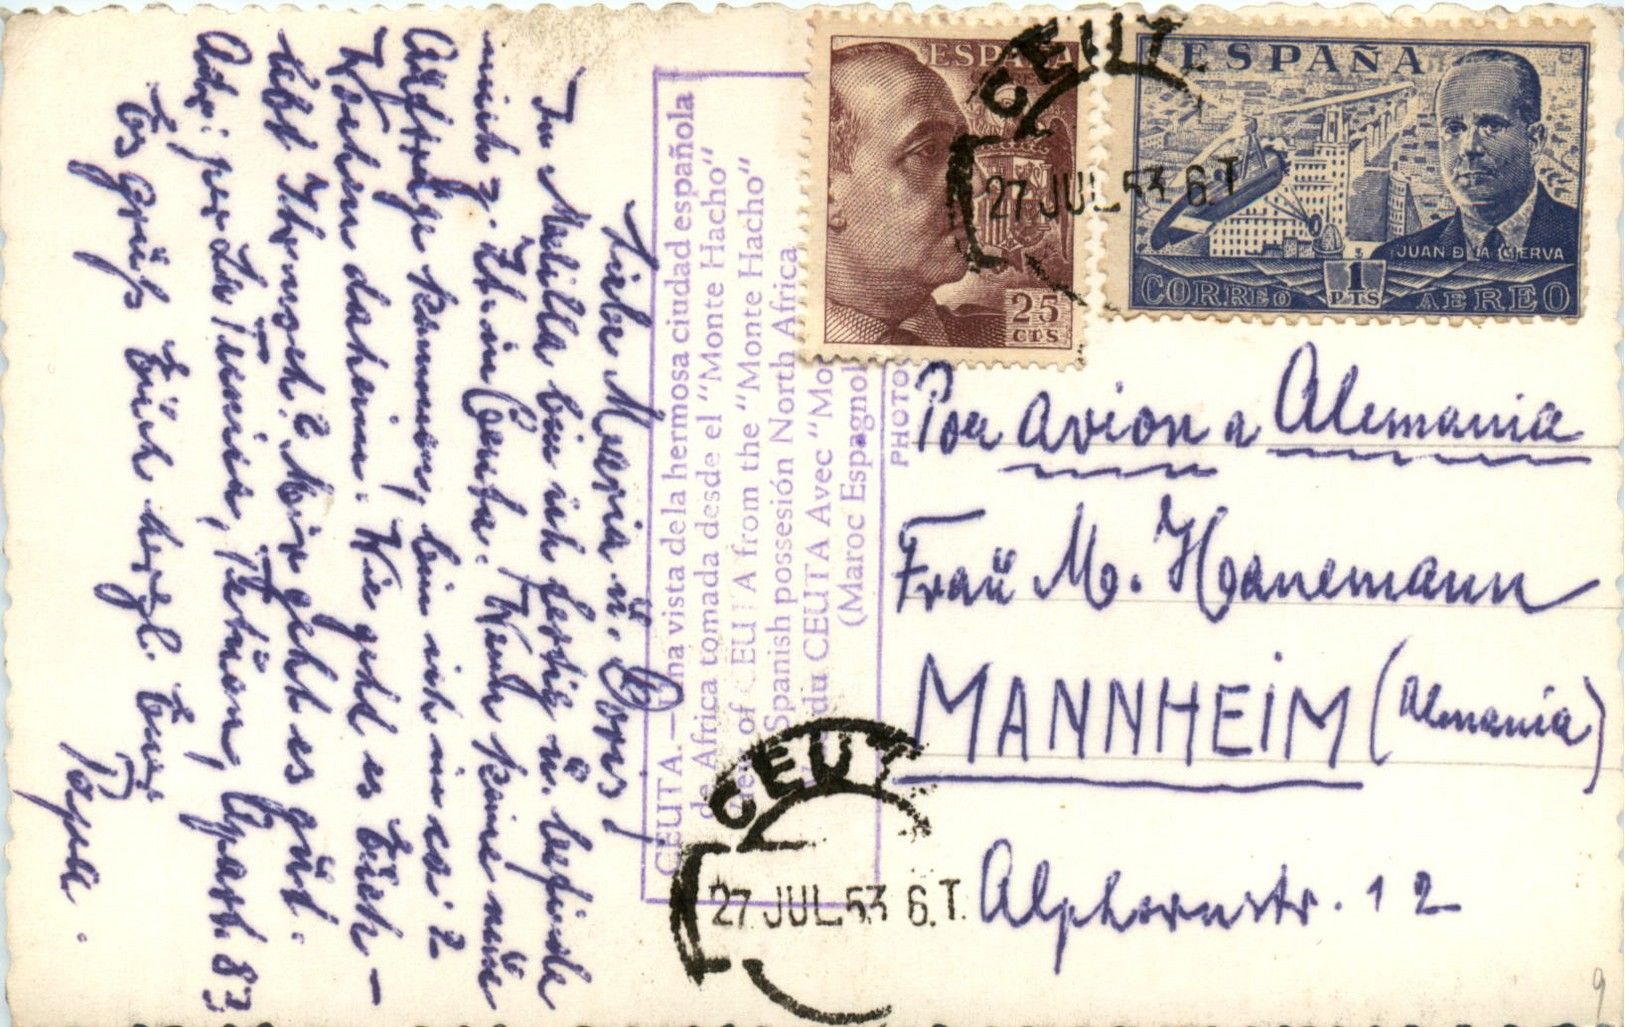 Liebe Maria u. Doris!
In Melilla bin ich fertig u. befinde
mich z. Zt. in Ceuta. Wenn keine neue
Aufträge kommen, bin ich in ca. 2
Wochen daheim. Wie geht es Euch –
lebt Ihr noch? Mir geht es gut.
Adr: per La Tecnica, Tetúan, Apart. 83
Es grüßt Euch herzl. Euer
Papa.
CEUTA.—Una vista de la hermosa ciudad española
de Africa tomada desde el "Monte Hacho"
View of CEUTA from the "Monte Hacho"
Spanish possesión North Africa
du CEUTA Avec "Mo
(Maroc Espagnol
PHOTO
ESPAÑA
25
CTS
ESPAÑA
JUAN DE LA CIERVA
1
PTS
CORREO AEREO
CEUT
27 JUL.53 6.T
Por avion a Alemania
Frau M. Hanemann
MANNHEIM (Almania)
Alphornstr. 12
CEUT
27 JUL.53 6.T.
9